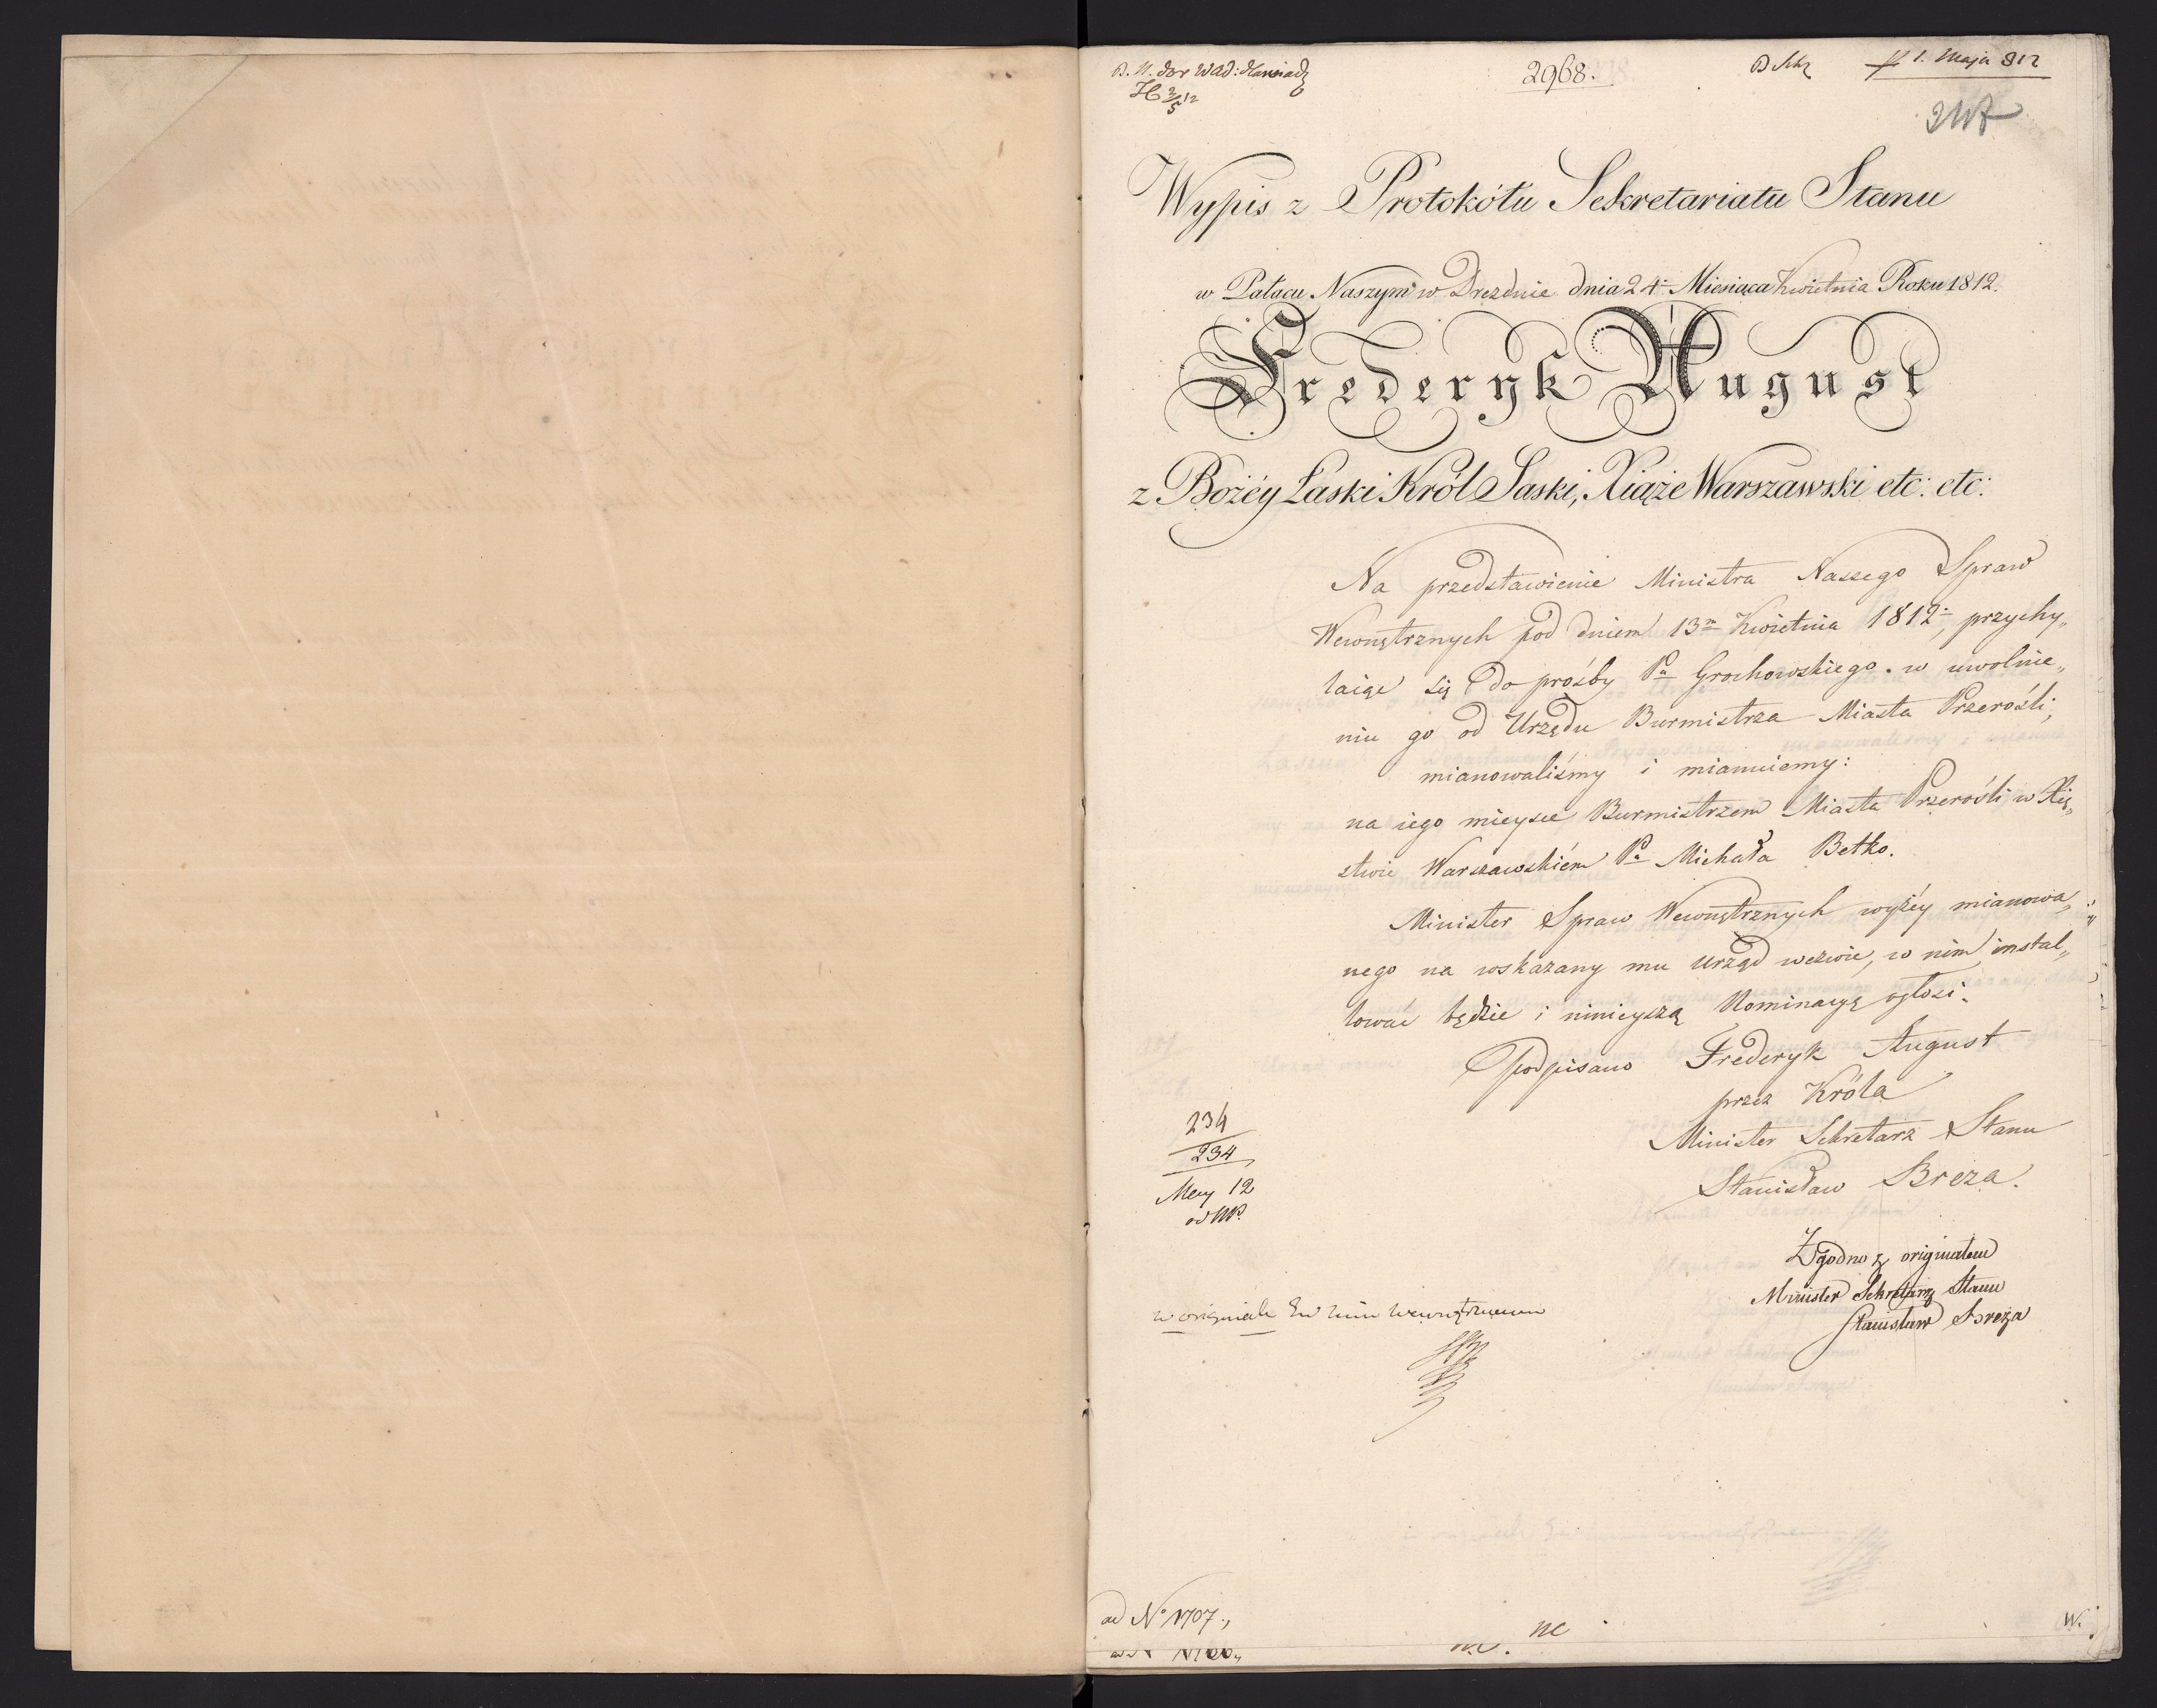 2968.
1. Maja 812
Wypis z Protokółu Sekretariatu Stanu
w Pałacu Naszym w Dreznie dnia 24. Miesiąca Kwietnia Roku 1812.
Frederyk August
z Bożéy Łaski Król Saski, Xiąże Warszawski etc: etc:
Na przedstawienie Ministra Naszego Spraw
Wewnętrznych pod dniem 13m Kwietnia 1812, przychy„
laiąc się do prośby Pa Grochowskiego w uwolnie„
niu go od Urzędu Burmistrza Miasta Przerośli,
mianowaliśmy i mianuiemy:
na iego mieysce Burmistrzem Miasta Przerośli w Xię„
stwie Warszawskiém Pa Michała Betko.
Minister Spraw Wewnętrznych wyżéy mianowa„
nego na wskazany mu Urząd wezwie, w nim instal„
lować będzie i ninieyszą Nominacyę ogłosi.
Podpisano Frederyk August
przez Króla
Minister Sekretarz Stanu
Stanisław Breza.
234
234
May 12
Zgodno z originałem
Minister Sekretarz Stanu
Stanisław Breza
w originale
ad No 1707.,
W.